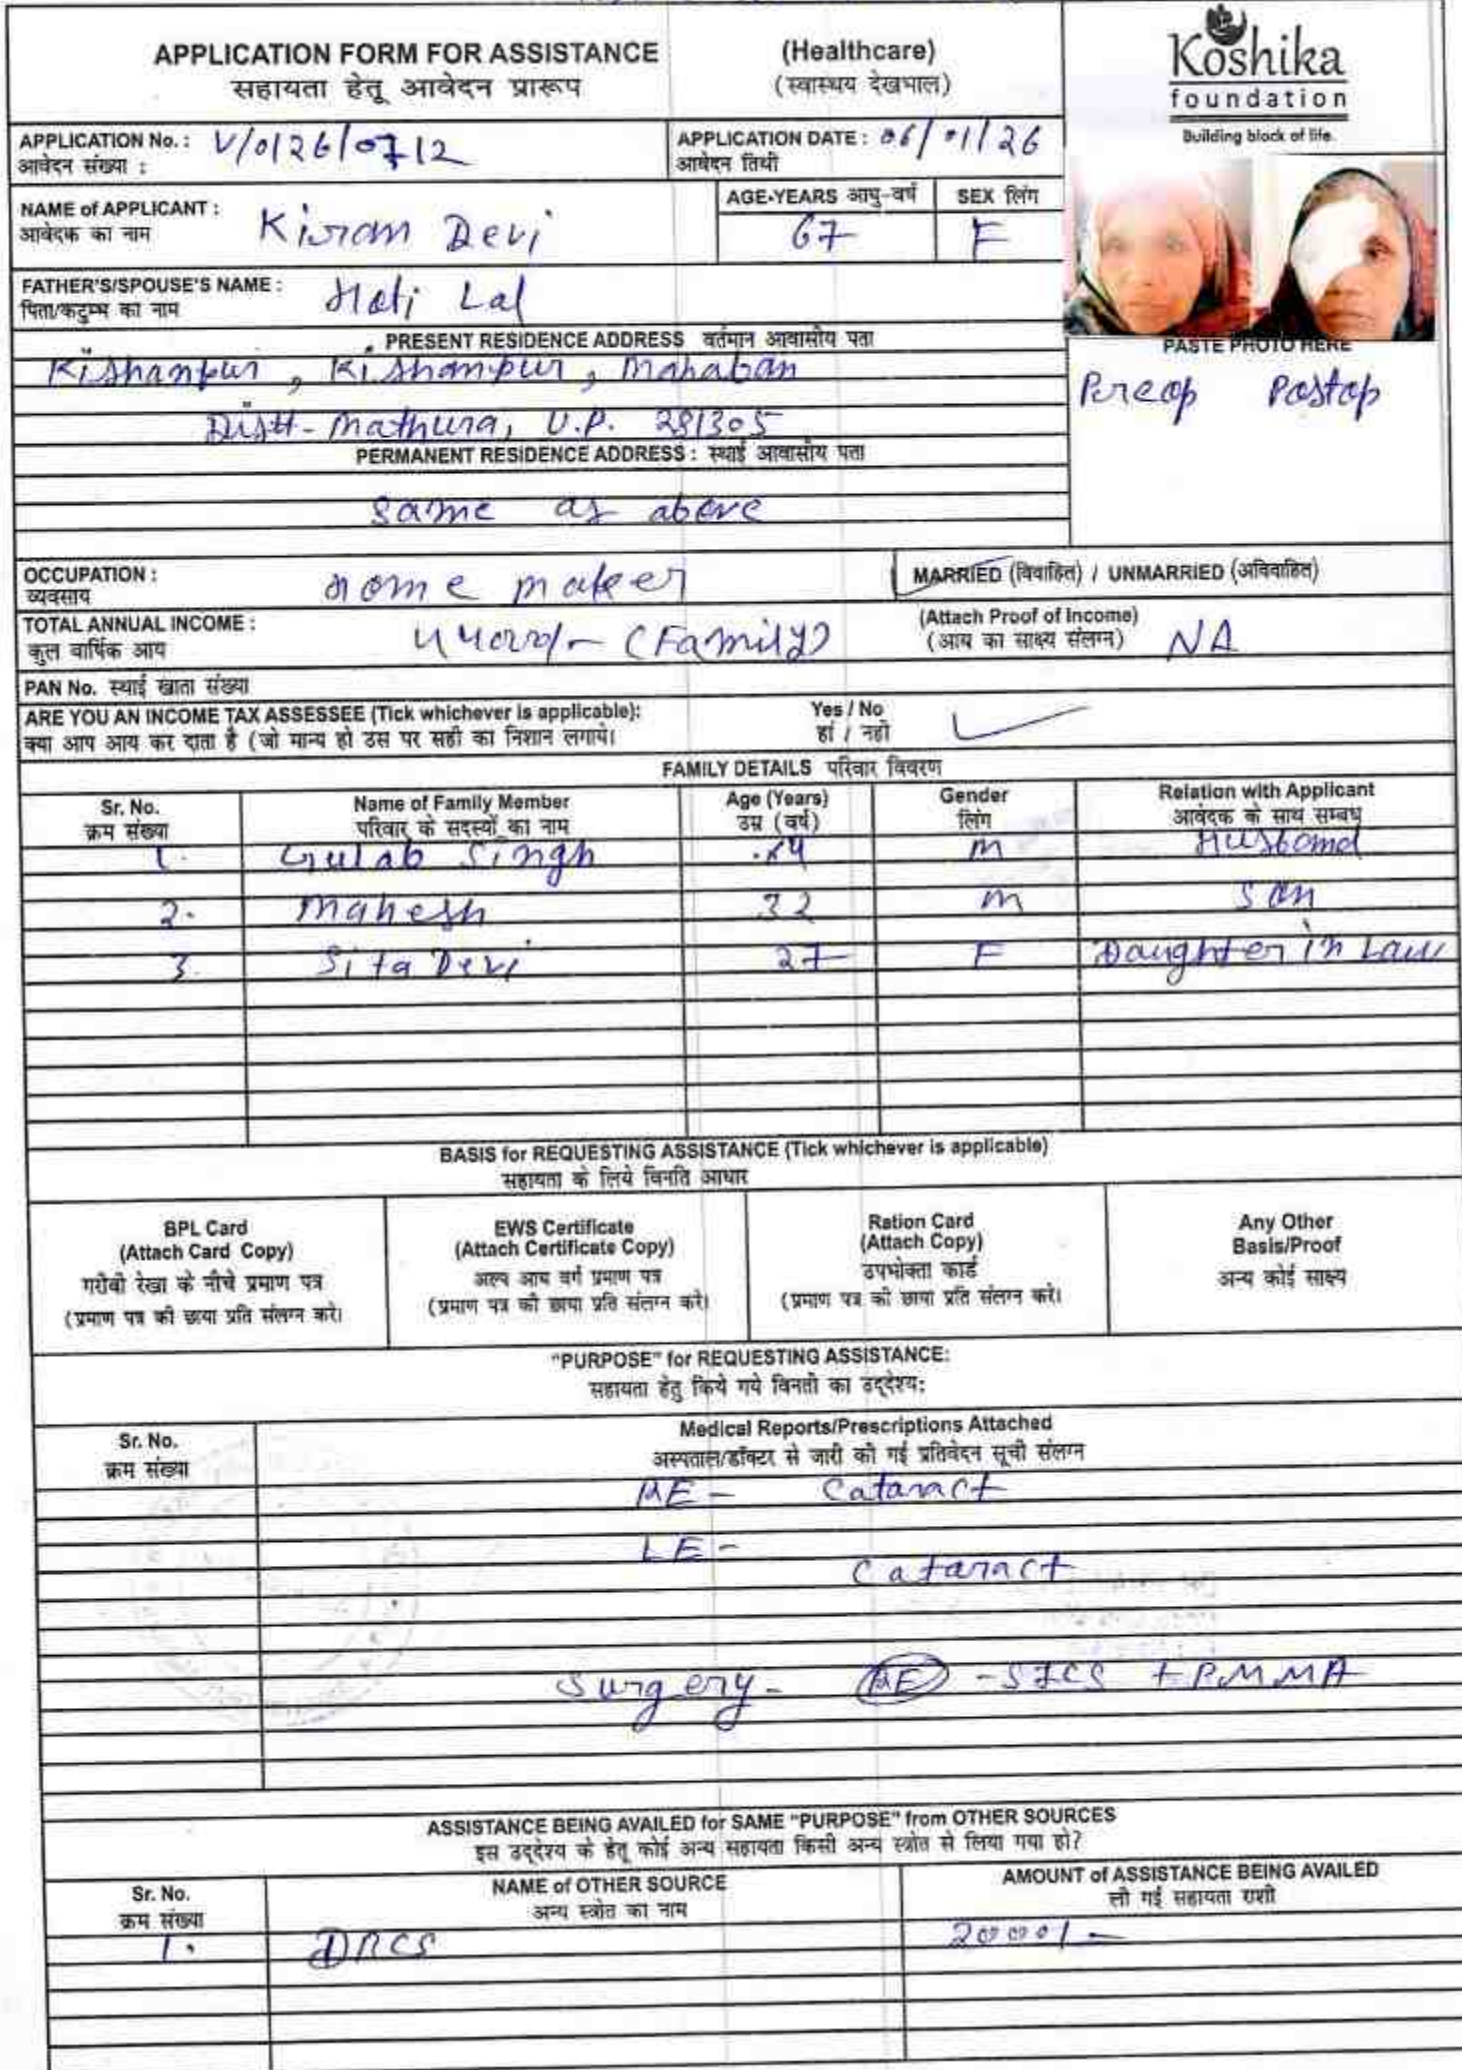 APPLICATION FORM FOR ASSISTANCE
सहायता हेतू आवेदन प्रारूप
(Healthcare)
(स्वास्थय देखभाल)
Koshika
foundation
Building block of life.
APPLICATION No. : V/0126/0712
आवेदन संख्या :
APPLICATION DATE : 06/01/26
आवेदन तिथी
NAME of APPLICANT : Kiran Devi
आवेदक का नाम
AGE-YEARS आयु-वर्ष
67
SEX लिंग
F
FATHER'S/SPOUSE'S NAME : Lal
पिता/कटुम्ब का नाम
PRESENT RESIDENCE ADDRESS वर्तमान आवासीय पता
Kishanpur, Kishanpur, Mahaban
Distt- Mathura, U.P. 281305
PERMANENT RESIDENCE ADDRESS : स्थाई आवासीय पता
same as above
PASTE PHOTO HERE
Preop Postop
OCCUPATION : Home maker
व्यवसाय
MARRIED (विवाहित) / UNMARRIED (अविवाहित)
TOTAL ANNUAL INCOME : (Family)
कुल वार्षिक आय
(Attach Proof of Income)
(आय का साक्ष्य संलग्न) NA
PAN No. स्थाई खाता संख्या
ARE YOU AN INCOME TAX ASSESSEE (Tick whichever is applicable):
क्या आप आय कर दाता है (जो मान्य हो उस पर सही का निशान लगाये।
Yes / No
हां / नही
FAMILY DETAILS परिवार विवरण
Sr. No. Name of Family Member Age (Years) Gender Relation with Applicant
क्रम संख्या परिवार के सदस्यों का नाम उम्र (वर्ष) लिंग आवेदक के साथ सम्बंध
1. Gulab Singh M Husband
2. Mahesh 32 M Son
3. Sita Devi 27 F Daughter in Law
BASIS for REQUESTING ASSISTANCE (Tick whichever is applicable)
सहायता के लिये विनति आधार
BPL Card
(Attach Card Copy)
गरीबी रेखा के नीचे प्रमाण पत्र
(प्रमाण पत्र की छाया प्रति संलग्न करे।
EWS Certificate
(Attach Certificate Copy)
अल्प आय वर्ग प्रमाण पत्र
(प्रमाण पत्र की छाया प्रति संलग्न करे।
Ration Card
(Attach Copy)
उपभोक्ता कार्ड
(प्रमाण पत्र की छाया प्रति संलग्न करे।
Any Other
Basis/Proof
अन्य कोई साक्ष्य
"PURPOSE" for REQUESTING ASSISTANCE:
सहायता हेतु किये गये विनती का उद्देश्य:
Sr. No.
क्रम संख्या
Medical Reports/Prescriptions Attached
अस्पताल/डॉक्टर से जारी की गई प्रतिवेदन सूची संलग्न
RE - Cataract
LE -
Cataract
Surgery - RE - SICS + PMMA
ASSISTANCE BEING AVAILED for SAME "PURPOSE" from OTHER SOURCES
इस उद्देश्य के हेतू कोई अन्य सहायता किसी अन्य स्त्रोत से लिया गया हो?
Sr. No. NAME of OTHER SOURCE AMOUNT of ASSISTANCE BEING AVAILED
क्रम संख्या अन्य स्त्रोत का नाम ली गई सहायता राशी
1. 2000/-